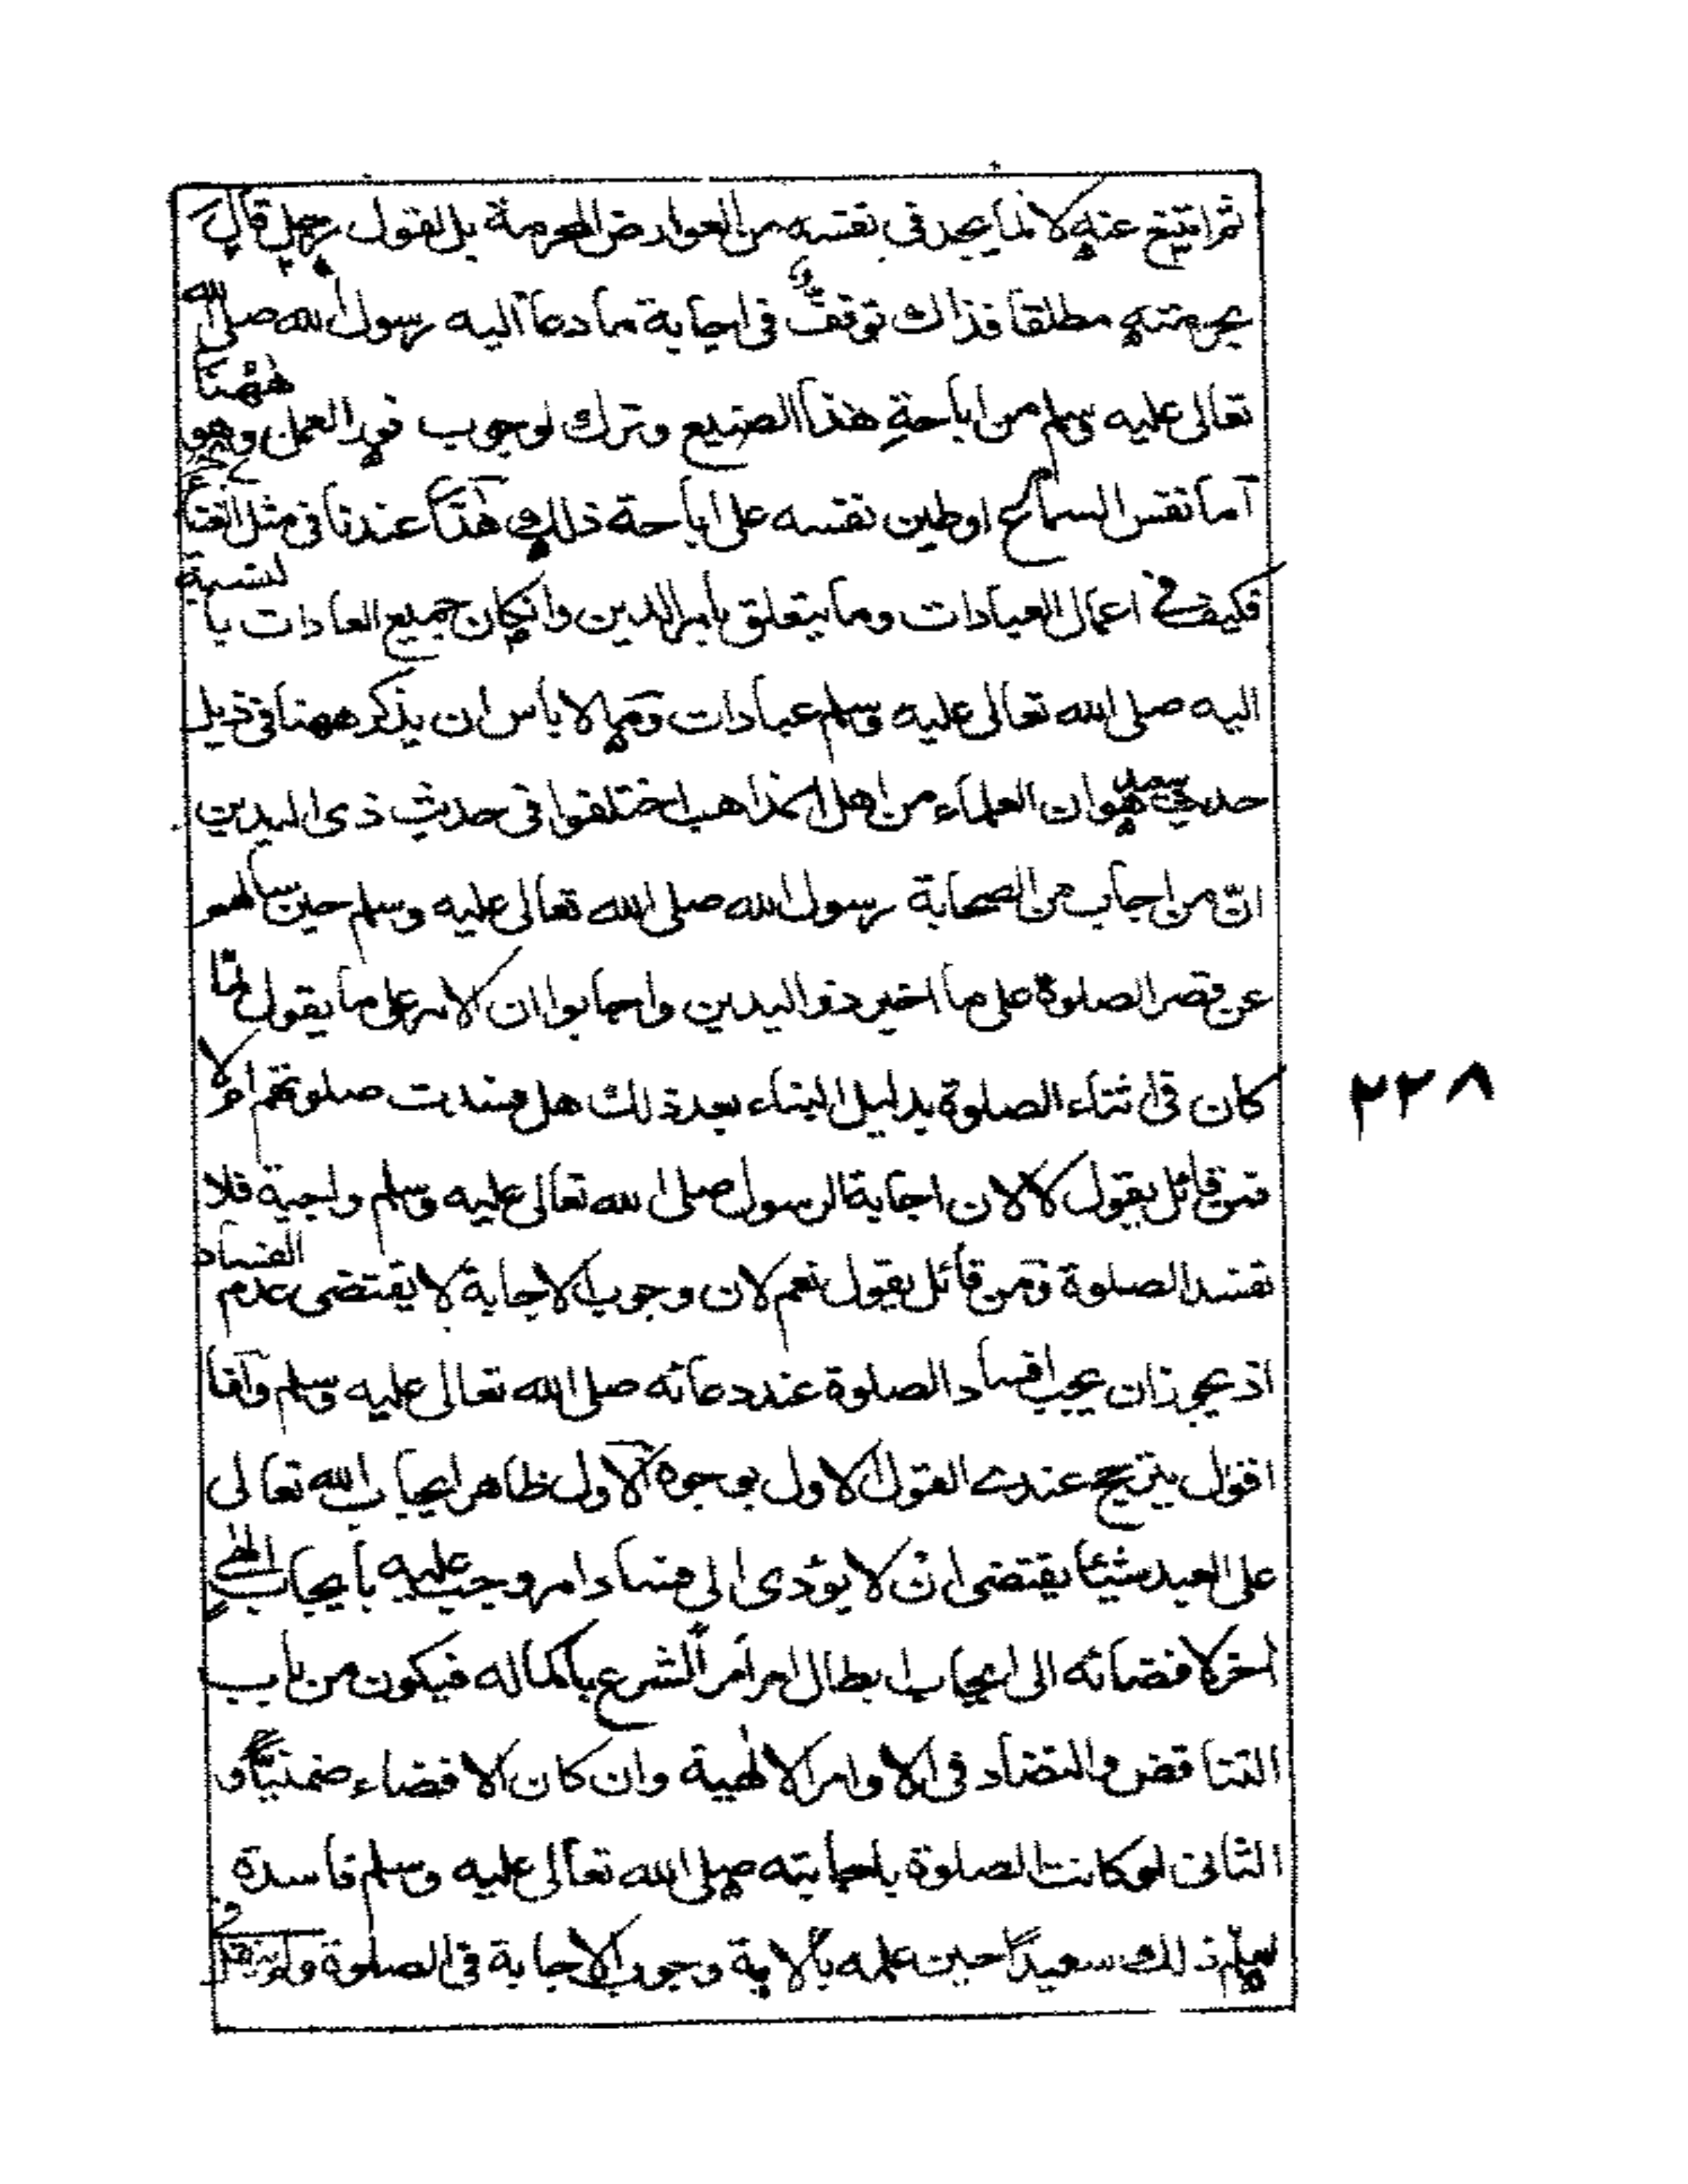 ثم امتنع عنه لا لما يجد في نفسه من العوارض المحرمة بل لقول رجل قال
بحرمته مطلقا فذاك توقف في اجابة ما دعا اليه رسول الله صلى الله
تعالى عليه وسلم من اباحة هذا الصنيع وترك لوجوب فور العمل وهو ههنا
اما نفس السماع او طين نفسه على اباحة ذلك هذا عندنا في مثل الغنا
فكيف في اعمال العبادات وما يتعلق بامر الدين وانكان جميع العادات بالنسبة
اليه صلى الله تعالى عليه وسلم عبادات ومما لا باس ان يذكر ههنا في ذيل
حديث سعيد هو ان العلماء من اهل المذاهب اختلفوا في حديث ذي اليدين
انّ من اجاب من الصحابة رسول الله صلى الله تعالى عليه وسلم حين سالهم
عن قصر الصلوة على ما اخبر ذو اليدين واجابوا ان الامر على ما يقول لما
كان في اثناء الصلوة بدليل البناء بعد ذلك هل فسدت صلوتهم ام لا
فمن قائل يقول لا لان اجابة الرسول صلى الله تعالى عليه وسلم واجبة فلا
تفسد الصلوة ومن قائل يقول نعم لان وجوب الاجابة لا يقتضى عدم الفساد
اذ يجوز ان يجب افساد الصلوة عند دعائه صلى الله تعالى عليه وسلم وانا
اقول يترجح عندي القول الاول بوجوه الاول ظاهر ايجاب الله تعالى
على العبد شيئا يقتضى ان لا يؤدى الى فساد امر وجب عليه بايجاب الهي
اخر لافضائه الى ايجاب ابطال امر امر الشرع باكماله فيكون من باب
التناقض والتضاد في الاوامر الالهية وان كان الافضاء ضمنيا و
الثاني لو كانت الصلوة باجابته صلى الله تعالى عليه وسلم فاسدة
لعلم ذلك سعيدا حين علمه بالاية وجوب الاجابة في الصلوة ولم ينقل و
٢٢٨